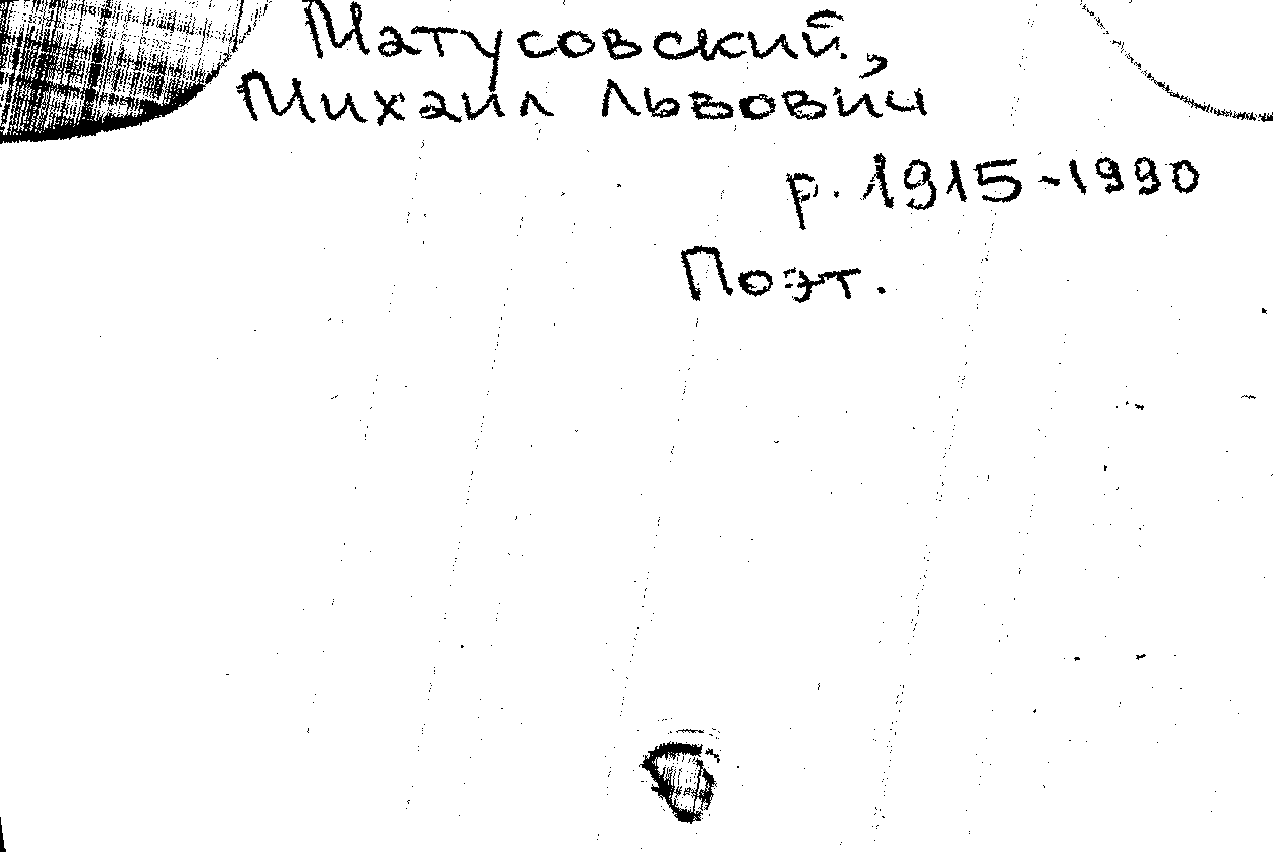 Матусовский,
Михаил Львович
р. 1915-1990
Поэт.